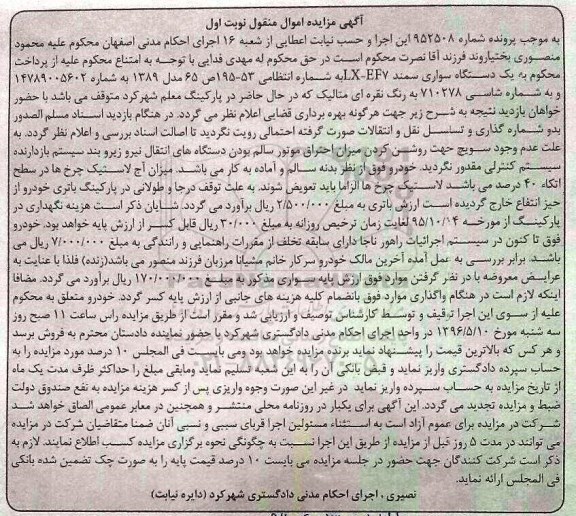 آگهی مزایده اموال منقول نوبت اول
به موجب پرونده شماره ۹۵۲۵۰۸ این اجرا و حسب نیابت اعطایی از شعبه ۱۶ اجرای احکام مدنی اصفهان محکوم علیه محمود
منصوری بختیاروند فرزند آقا نصرت محکوم است در حق محکوم له مهدی فدایی با توجه به امتناع محکوم علیه از پرداخت
محکوم به یک دستگاه سواری سمند LX-EF۷ به شماره انتظامی ۵۳-۱۹۵ص ۶۵ مدل ۱۳۸۹ به شماره ۱۴۷۸۹۰۰۵۶۰۲
و به شماره شاسی ۷۱۰۲۷۸ به رنگ نقره ای متالیک که در حال حاضر در پارکینگ معلم شهرکرد متوقف می باشد با حضور
خواهان بازدید نتیجه به شرح زیر جهت هرگونه بهره برداری قضایی اعلام نظر می گردد. در هنگام بازدید اسناد مسلم الصدور
بدو شماره گذاری و تسلسل نقل و انتقالات صورت گرفته احتمالی رویت نگردید تا اصالت اسناد بررسی و اعلام نظر گردد. به
علت عدم وجود سویچ جهت روشن کردن میزان احتراق موتور سالم بودن دستگاه های انتقال نیرو زیرو بند سیستم بازدارنده
سیستم کنترلی مقدور نگردید. خودرو فوق از نظر بدنه سالم و آماده به کار می باشد. میزان آج لاستیک چرخ ها در سطح
اتکاء ۴۰ درصد می باشد لاستیک چرخ ها الزاما باید تعویض شوند. به علت توقف درجا و طولانی در پارکینگ باتری خودرو از
حیز انتفاع خارج گردیده است ارزش باتری به مبلغ ۲/۵۰۰/۰۰۰ ریال برآورد می گردد. شایان ذکر است هزینه نگهداری در
پارکینگ از مورخه ۹۵/۱۰/۱۴ لغایت زمان ترخیص روزانه به مبلغ ۳۰/۰۰۰ ریال قابل کسر از ارزش پایه خواهد بود. خودرو
فوق تا کنون در سیستم اجرائیات راهور ناجا دارای سابقه تخلف از مقررات راهنمایی و رانندگی به مبلغ ۷/۰۰۰/۰۰۰ ریال می
باشد. برابر بررسی به عمل آمده آخرین مالک خودرو سرکار خانم مشیانا مرزبان فرزند منصور می باشد(زنده) فلذا با عنایت به
عرایض معروضه با در نظر گرفتن موارد فوق ارزش پایه سواری مذکور به مبلغ ۱۷۰/۰۰۰/۰۰۰ ریال برآورد می گردد. مضافا
اینکه لازم است در هنگام واگذاری موارد فوق بانضمام کلیه هزینه های جانبی از ارزش پایه کسر گردد. خودرو متعلق به محکوم
علیه از سوی این اجرا توقیف و توسط کارشناس توصیف و ارزیابی شد و مقرر است از طریق مزایده راس ساعت ۱۱ صبح روز
سه شنبه مورخ ۱۳۹۶/۵/۱۰ در واحد اجرای احکام مدنی دادگستری شهرکرد با حضور نماینده دادستان محترم به فروش برسد
و هر کس که بالاترین قیمت را پیشنهاد نماید برنده مزایده خواهد بود ومی بایست فی المجلس ۱۰ درصد مورد مزایده را به
حساب سپرده دادگستری واریز نماید و فیش بانکی آن را به این شعبه تسلیم نماید ومابقی مبلغ را حداکثر ظرف مدت یک ماه
از تاریخ مزایده به حساب سپرده واریز نماید در غیر این صورت وجوه واریزی پس از کسر هزینه مزایده به نفع صندوق دولت
ضبط و مزایده تجدید می گردد. این آگهی برای یکبار در روزنامه محلی منتشر و همچنین در معابر عمومی الصاق خواهد شد
شرکت در مزایده برای عموم آزاد است به استثناء مسئولین اجرا قربای سببی و نسبی آنان ضمنا متقاضیان شرکت در مزایده
می توانند در مدت ۵ روز قبل از مزایده از طریق این اجرا نسبت به چگونگی نحوه برگزاری مزایده کسب اطلاع نمایند. لازم به
ذکر است شرکت کنندگان جهت حضور در جلسه مزایده می بایست ۱۰ درصد قیمت پایه را به صورت چک تضمین شده بانکی
فی المجلس ارائه نماید.
نصیری ، اجرای احکام مدنی دادگستری شهرکرد (دایره نیابت)